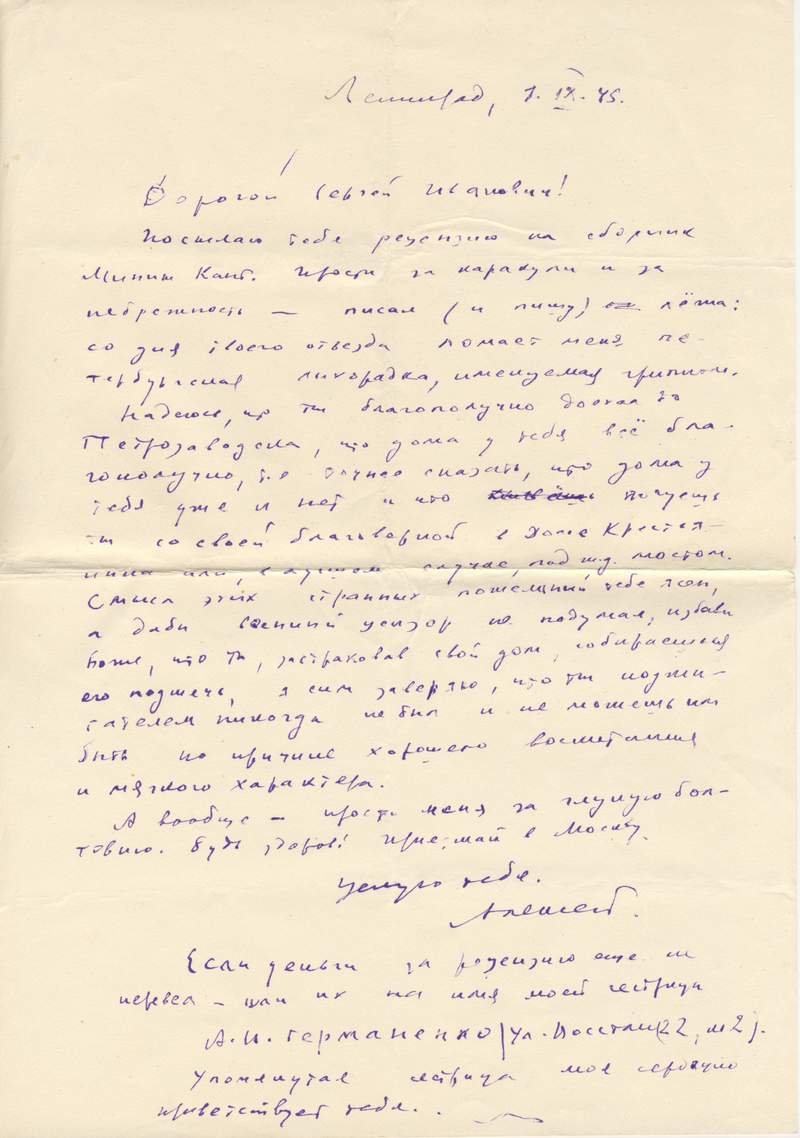 Ленинград, 7.IX.45.
Дорогой Сергей Иванович!
Посылаю тебе рецензию на сборник
Минин Кант. Прости за каракули и за
небрежность — писал (и пишу) лёжа:
со дня твоего отъезда ломает меня пе-
тербургская лихорадка, именуемая гриппом.
Надеюсь, что ты благополучно доехал до
Петрозаводска, что дома у тебя всё бла-
гополучно, т.е. точнее сказать, что дома у
тебя уже и нет и что ночуешь
ты со своей благоверной в Доме Крестья-
нина или, в лучшем случае, под ж.д. мостом.
Смысл этих странных пожеланий тебе ясен,
а дабы военный цензор не подумал, избави
боже, что ты, застраховав свой дом, собираешься
его поджечь, я сим заверяю, что ты поджи-
гателем никогда не был и не можешь им
быть по причине хорошего воспитания
и мягкого характера.
А вообще — прости меня за глупую бол-
товню. Будь здоров! Приезжай в Москву.
Целую тебя.
Алексей.
Если деньги за рецензию еще не
перевел — шли их на имя моей сестрицы
А.И. Германенко (ул. Восстан. 22, м 2).
Упомянутая сестрица моя сердечно
приветствует тебя.